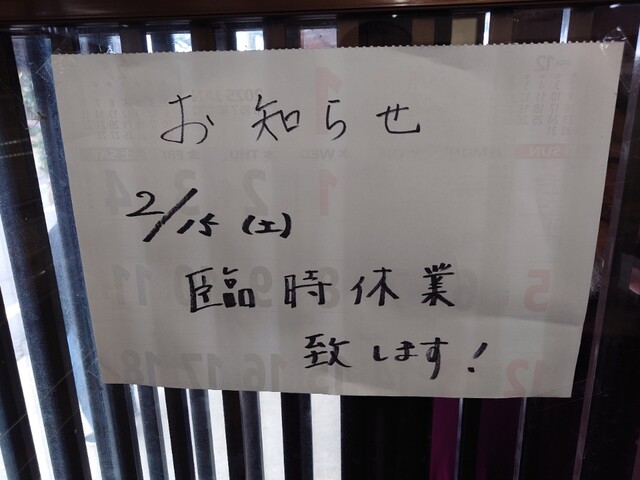 お知らせ
2/15(土)
臨時休業
致します!